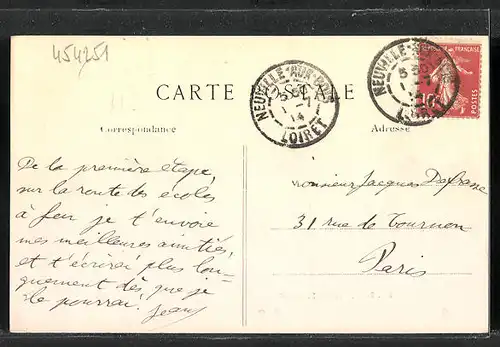 454251
CARTE POSTALE
Correspondance
Adresse
NEUVILLE-AUX-BOIS
1-7
14
LOIRET
NEUVILLE-AUX
5 30
RÉPUBLIQUE FRANÇAISE
10
POSTES
De la première étape,
sur la route des écoles
à feu je t'envoie
mes meilleures amitiés,
et t'écrirai plus lon-
guement dès que je
le pourrai. Jean
Monsieur Jacques Dufrasne
31 rue de Tournon
Paris